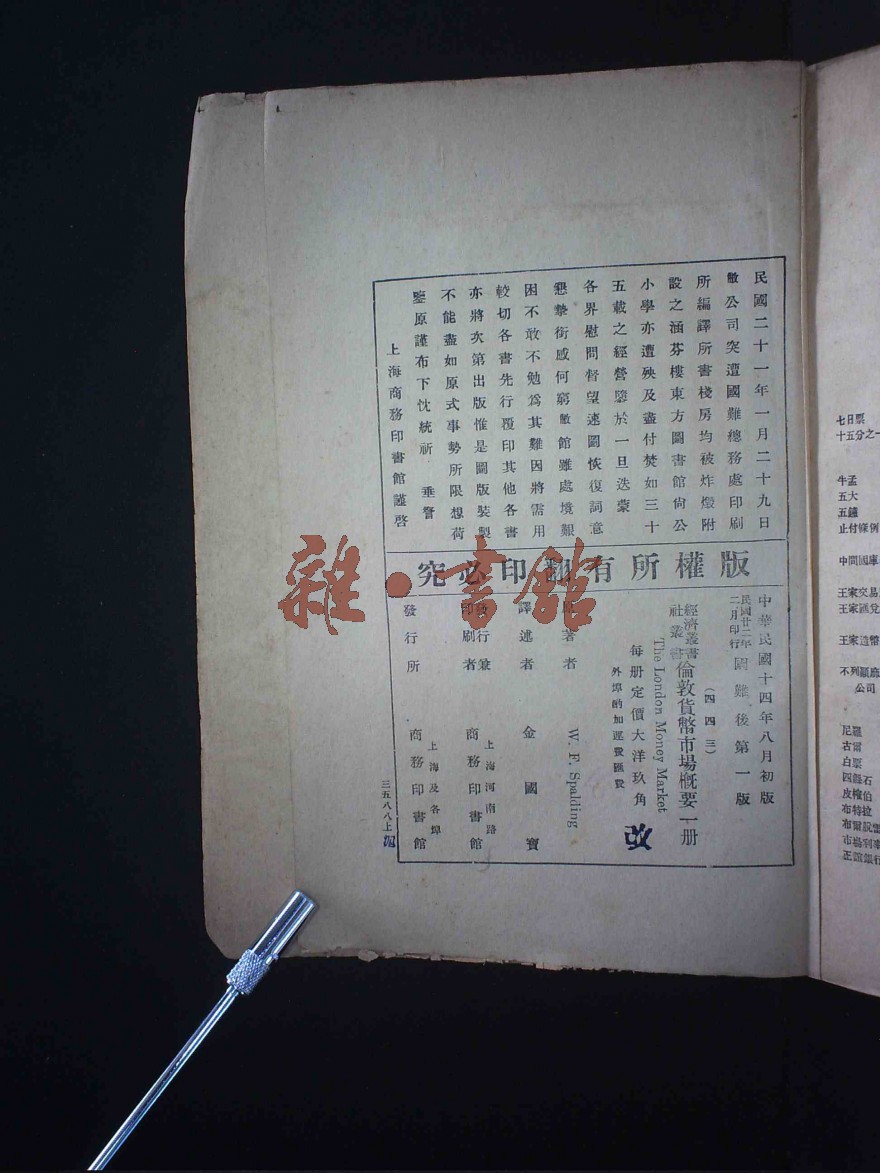 民國二十一年一月二十九日
敝公司突遭國難總務處印刷
所編譯所書棧房均被炸燬附
設之涵芬樓東方圖書館尚公
小學亦遭殃及盡付焚如三十
五載之經營隳於一旦迭蒙
各界慰問督望速圖恢復詞意
懇摯銜感何窮敝館雖處境艱
困不敢不勉為其難因將需用
較切各書先行覆印其他各書
亦將次第出版惟是圖版裝製
不能盡如原式事勢所限想荷
鑒原謹布下忱統祈 垂詧
上海商務印書館謹啓
版權所有翻印必究
中華民國十四年八月初版
民國廿二年二月印行 國難後第一版
(四四三)
經濟叢書社叢書 倫敦貨幣市場概要一册
The London Money Market
每册定價大洋玖角
外埠酌加運費匯費
改
原著者 W. F. Spalding
譯述者 金國寶
發行兼印刷者 上海河南路 商務印書館
發行所 上海及各埠 商務印書館
三五八八上
雜·書館
七日票
十五分之一
牛孟
五大
五鎊
止付條例
中間國庫
王家交易
王家匯兌
王家造幣
不列顛麻
公司
尼羅
古爾
白裂
四縣石
皮梭伯
布特拉
布爾脫
市場利率
正誼銀行